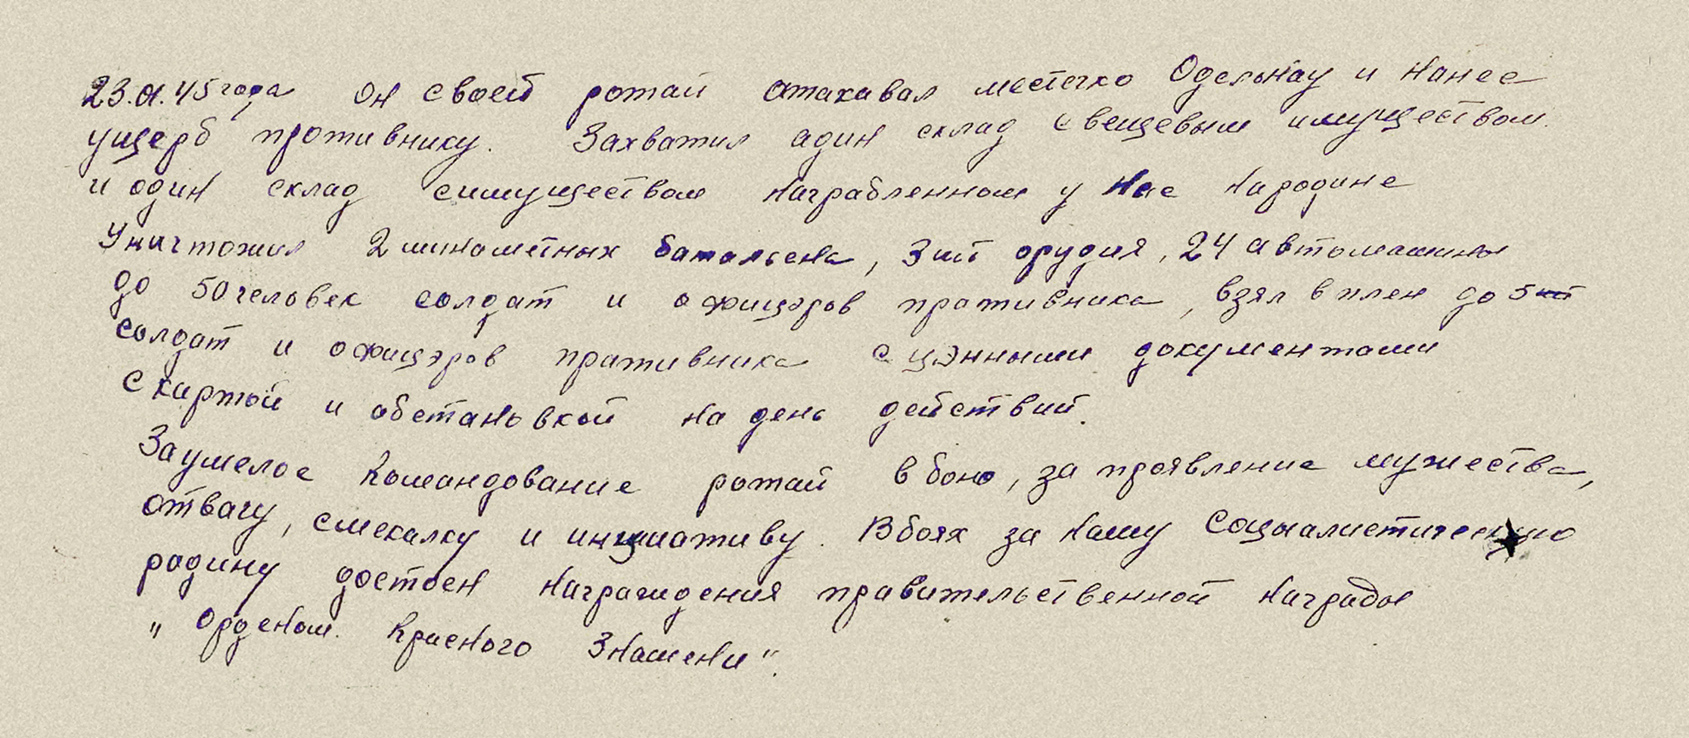 23.01.45 года он своей ротай атакавал местечко Одельнау и нанес
ущерб противнику. Захватил адин склад с вещевым имуществом.
и один склад с имуществом награбленном у нас на родине
Уничтожил 2 минометных батальена, 3 шт орудия, 24 автомашины
до 50 человек солдат и офицэров пративника, взял в плен до 5 шт
солдат и офицэров пративника с цэнными документами
с картой и обстановкой на день действий.
За умелое командование ротай в бою, за проявление мужества,
отвагу, смекалку и инициативу. В боях за нашу социалистическую
родину достоен награждения правительственной награды
" Орденом Красного Знамени".